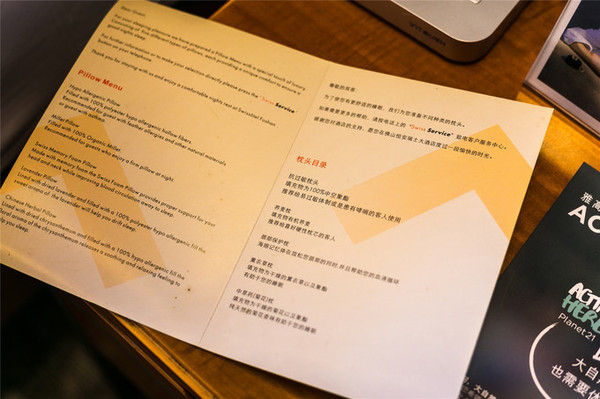 Dear Guest,
For your sleeping pleasure we have prepared a Pillow Menu with a special touch of luxury.
Consisting of five different types of pillows, each providing a unique comfort to ensure a
good nights sleep.
For further information or to make your selection directly please press the "Swiss Service"
button on your telephone.
Thank you for staying with us and enjoy a comfortable nights rest at Swissôtel Foshan
Pillow Menu
Hypo Allergenic Pillow
Filled with 100% polyester hypo allergenic hollow fibers.
Recommended for guest with feather allergies and other natural materials
or guest with asthma.
Millet Pillow
Filled with 100% Organic Millet.
Recommended for guests who enjoy a firm pillow at night.
Swiss Memory Foam Pillow
Made with memory foam the Swiss Foam Pillow provides proper support for your
head and neck while improving blood circulation away to sleep.
Lavender Pillow
Lined with dried lavender and filled with a 100% polyester hypo allergenic fill the
sweet aroma of the lavender will help you drift sleep.
Chinese Herbal Pillow
Lined with dried chrysanthemum and filled with a 100% hypo allergenic fill the
aroma of the chrysanthemum releases a soothing and relaxing feeling to
you sleep.
尊敬的宾客:
为了使你有更舒适的睡眠,我们为您准备不同种类的枕头。
如果需要更多的帮助,请致电话上的 "Swiss Service" 致电客户服务中心。
感谢您对酒店的支持,愿您在佛山恒安瑞士大酒店度过一段愉快的时光。
枕头目录
抗过敏枕头
填充物为100%中空聚酯
推荐给易过敏体制或是患有哮喘的客人使用
荞麦枕
填充物有机荞麦
推荐给喜好硬性枕芯的客人
颈部保护枕
海绵记忆择在放松您颈部的同时,并且帮助您的血液循环
薰衣草枕
填充物为干燥的薰衣草以及聚酯
有助于您的睡眠
中草药(菊花)枕
填充物为干燥的菊花以及聚酯
纯天然的菊花香味有助于您的睡眠
雅高
AC
ACTI
HERO
Planet 21
大自
也需要优